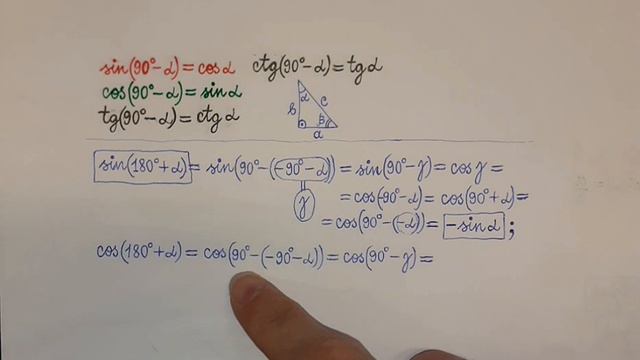 sin(90°-α)=cosα ctg(90°-α)=tgα
cos(90°-α)=sinα
tg(90°-α)=ctgα
α
b c
β
a
sin(180°+α)=sin(90°-(-90°-α))=sin(90°-γ)=cosγ=
γ
=cos(-90°-α)=cos(90°+α)=
=cos(90°-(-α))=-sinα;
cos(180°+α)=cos(90°-(-90°-α))=cos(90°-γ)=